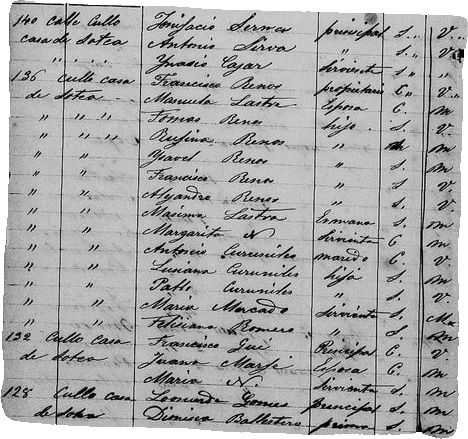 140 calle Cullo Bonifacio Serna principal S. V.
casa de Sotea Antonio Serva " S. V.
" " Ynasio Cajar Sirviente S. "
136 Cullo casa Francisco Renos propietario C. V.
de Sotea Manuela Lastra Esposa C. m
" " " Tomas Renos hijo S. V.
" " " Rufina Renos " m
" " Ysavel Renos " S. m
" " Francisco Renos " S V
" " Alejandro Renos " S. V.
" " Masima Lastra Ermana S. m
" " Margarita N Sirvienta C. m
" " Antonio Curuniles maredo C. V
" " Lusiana Curuniles hija S. m
" " Pablo Curuniles " S. V.
" " Maria Morcado Sirvienta S.
" " Feliciano Romero " S
132 Cullo casa Francisco Gui Principal C. V
de Sotea Juana Marfe Esposa C. m
Maria N Sirvienta S. m
128 Cullo casa Leonarda Gomes principal S. m
de Sotea Dominga Ballestero S. m